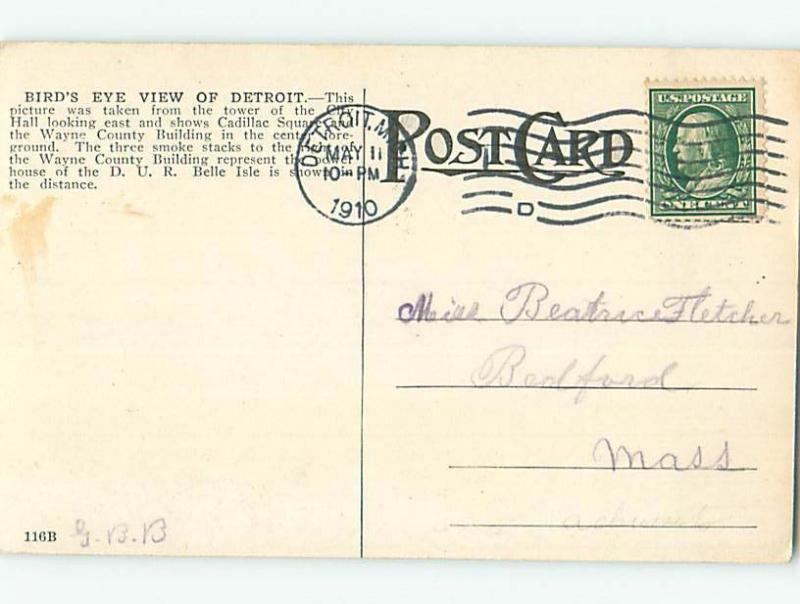 BIRD'S EYE VIEW OF DETROIT.—This
picture was taken from the tower of the City
Hall looking east and shows Cadillac Square and
the Wayne County Building in the center fore-
ground. The three smoke stacks to the
the Wayne County Building represent the power
house of the D. U. R. Belle Isle is shown in
the distance.
DETROIT, MICH.
MAY 11
10 - PM
1910
POST CARD
D
U.S. POSTAGE
ONE CENT
Miss Beatrice Fletcher
Bedford
Mass
116B G. B. B